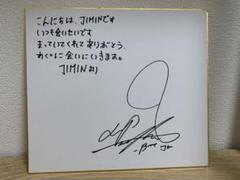 こんにちは、JIMINです
いつも会いたいです
まっていてくれてありがとう。
会いにいきます。
JIMINより